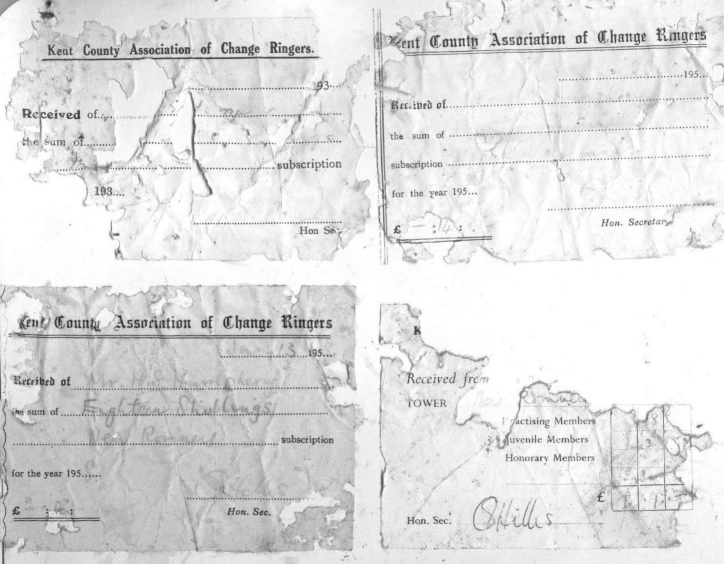 Kent County Association of Change Ringers.
193....
Received of
the sum of
subscription
193....
Hon Se
Kent County Association of Change Ringers
195...
Received of
the sum of
subscription
for the year 195...
Hon. Secretary
£ : 4 :
Kent County Association of Change Ringers
3 195...
Received of Mr
the sum of Eighteen Shillings
New Romney subscription
for the year 195......
£ : :
Hon. Sec.
K
Received from
TOWER New Romney
Practising Members 8
3 Juvenile Members 3
Honorary Members
£ 1 1
Hon. Sec. Hills